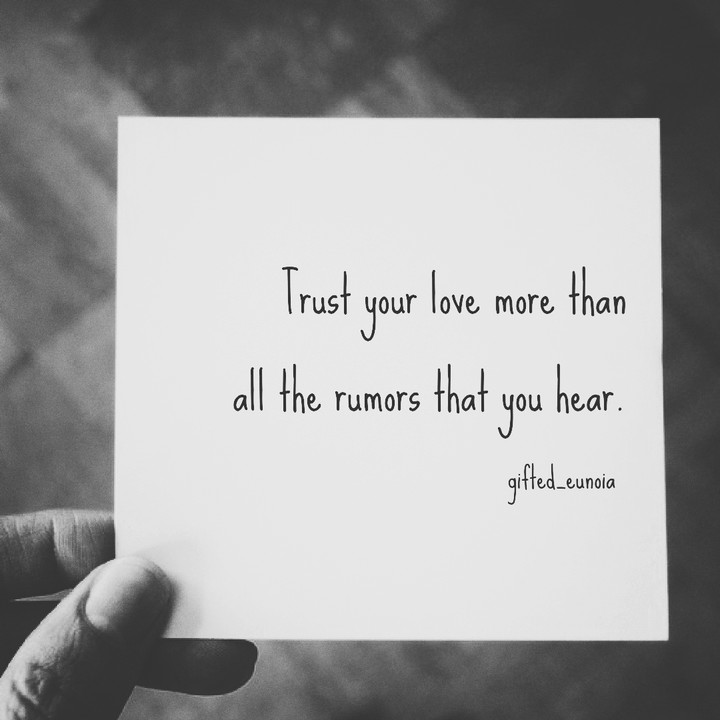 Trust your love more than
all the rumors that you hear.
gifted_eunoia